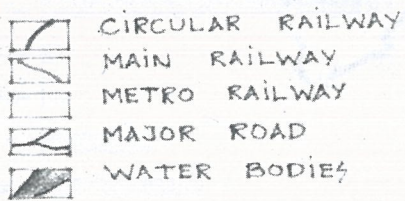 CIRCULAR RAILWAY
MAIN RAILWAY
METRO RAILWAY
MAJOR ROAD
WATER BODIES